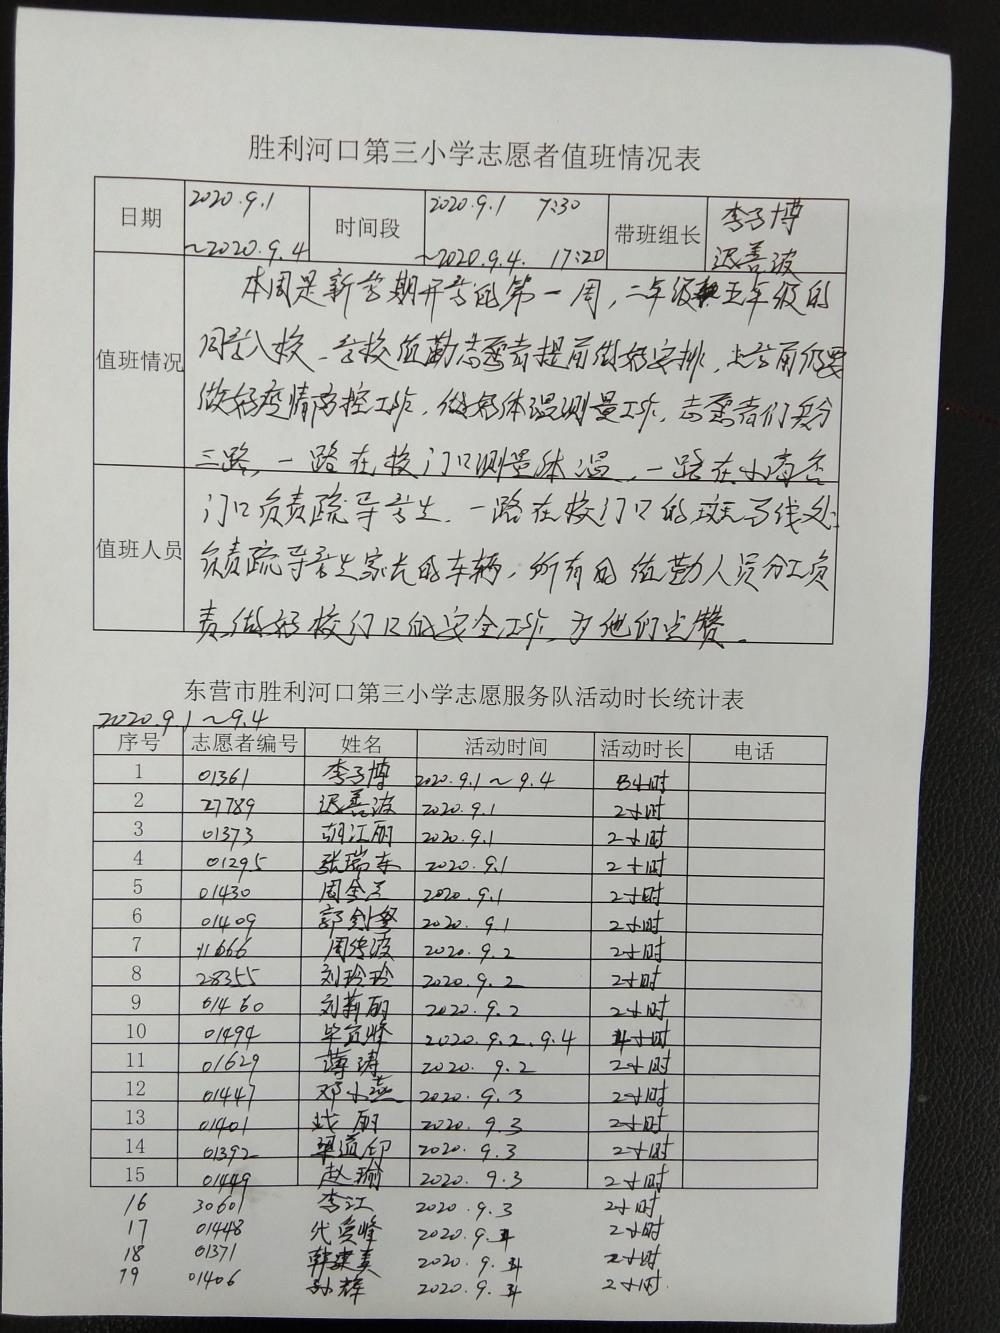 胜利河口第三小学志愿者值班情况表
日期 2020.9.1 ~2020.9.4 时间段 2020.9.1 7:30 ~2020.9.4. 17:20 带班组长 李子博 迟善波
值班情况
本周是新学期开学的第一周,二年级和五年级的
同学入校、学校值勤志愿者提前做好安排,上学前仍要
做好疫情防控工作,做好体温测量工作,志愿者们兵分
三路,一路在校门口测量体温,一路在小南
值班人员
门口负责疏导学生,一路在校门口的斑马线处
负责疏导学生家长的车辆,所有的值勤人员分工负
责,做好校门口的安全工作,为他们点赞。
东营市胜利河口第三小学志愿服务队活动时长统计表
2020.9.1~9.4
序号 志愿者编号 姓名 活动时间 活动时长 电话
1 01361 李子博 2020.9.1~9.4 8小时
2 27789 迟善波 2020.9.1 2小时
3 01373 胡江丽 2020.9.1 2小时
4 01295 张瑞东 2020.9.1 2小时
5 01430 周金兰 2020.9.1 2小时
6 01409 郭剑 2020.9.1 2小时
7 11666 周传波 2020.9.2 2小时
8 28355 刘玲玲 2020.9.2 2小时
9 01460 刘新丽 2020.9.2 2小时
10 01494 毕宜峰 2020.9.2、9.4 4小时
11 01629 薄涛 2020.9.2 2小时
12 01447 邓小燕 2020.9.3 2小时
13 01401 战丽 2020.9.3 2小时
14 01392 道印 2020.9.3 2小时
15 01449 赵瑜 2020.9.3 2小时
16 30601 李江 2020.9.3 2小时
17 01448 代负峰 2020.9.4 2小时
18 01371 韩建美 2020.9.4 2小时
19 01406 孙辉 2020.9.4 2小时